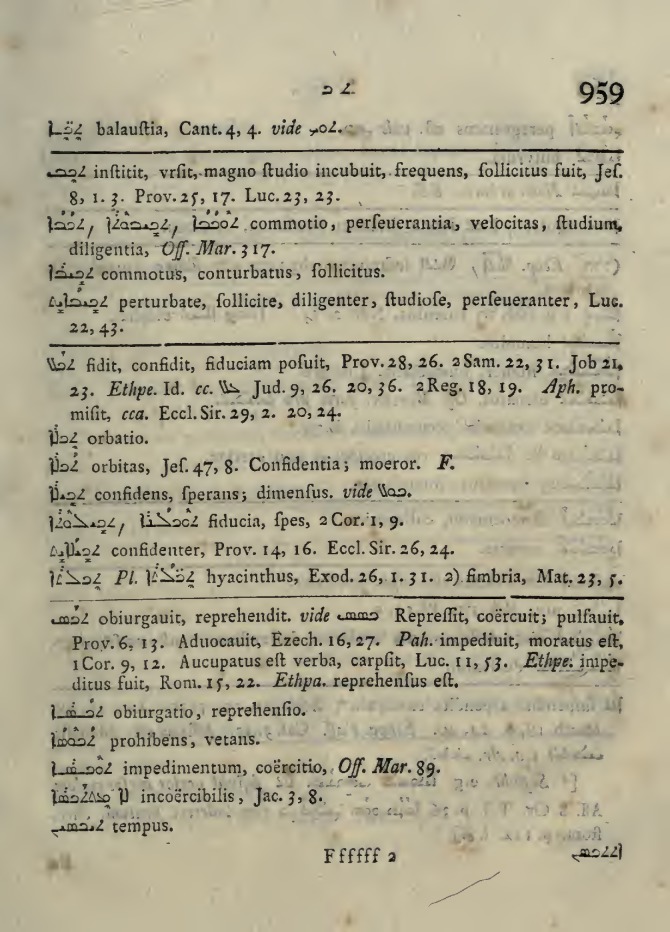 ܬ ܟ 959
balauſtia, Cant. 4, 4. vide
ܬܟܒ inſtitit, vrſit, magno ſtudio incubuit, frequens, ſollicitus fuit, Jeſ.
8, 1. 3. Prov. 25, 17. Luc. 23, 23.
ܬܟܒܐ, ܬܟܝܒܘܬܐ, ܬܘܟܒܐ commotio, perſeuerantia, velocitas, ſtudium,
diligentia, Off. Mar. 317.
ܬܟܝܒܐ commotus, conturbatus, ſollicitus.
ܬܟܝܒܐܝܬ perturbate, ſollicite, diligenter, ſtudioſe, perſeueranter, Luc.
22, 43.
ܬܟܠ fidit, confidit, fiduciam poſuit, Prov. 28, 26. 2 Sam. 22, 31. Job 21,
23. Ethpe. Id. cc. ܥܠ Jud. 9, 26. 20, 36. 2 Reg. 18, 19. Aph. pro-
miſit, cca. Eccl. Sir. 29, 2. 20, 24.
ܬܟܠܐ orbatio.
ܬܟܠܐ orbitas, Jeſ. 47, 8. Confidentia; moeror. F.
ܬܟܝܠܐ confidens, ſperans; dimenſus. vide ܟܘܠ.
ܬܘܟܠܢܐ, ܬܟܝܠܘܬܐ fiducia, ſpes, 2 Cor. 1, 9.
ܬܟܝܠܐܝܬ confidenter, Prov. 14, 16. Eccl. Sir. 26, 24.
ܬܟܠܬܐ Pl. ܬܟܠܬܐ hyacinthus, Exod. 26, 1. 31. 2) fimbria, Mat. 23, 5.
ܬܟܣ obiurgauit, reprehendit. vide ܟܣܣ Repreſſit, coërcuit; pulſauit,
Prov. 6, 13. Aduocauit, Ezech. 16, 27. Pah. impediuit, moratus eſt,
1 Cor. 9, 12. Aucupatus eſt verba, carpſit, Luc. 11, 53. Ethpe. impe-
ditus fuit, Rom. 15, 22. Ethpa. reprehenſus eſt.
obiurgatio, reprehenſio.
prohibens, vetans.
impedimentum, coërcitio, Off. Mar. 89.
ܠܐ incoërcibilis, Jac. 3, 8.
tempus.
F ffffff 2